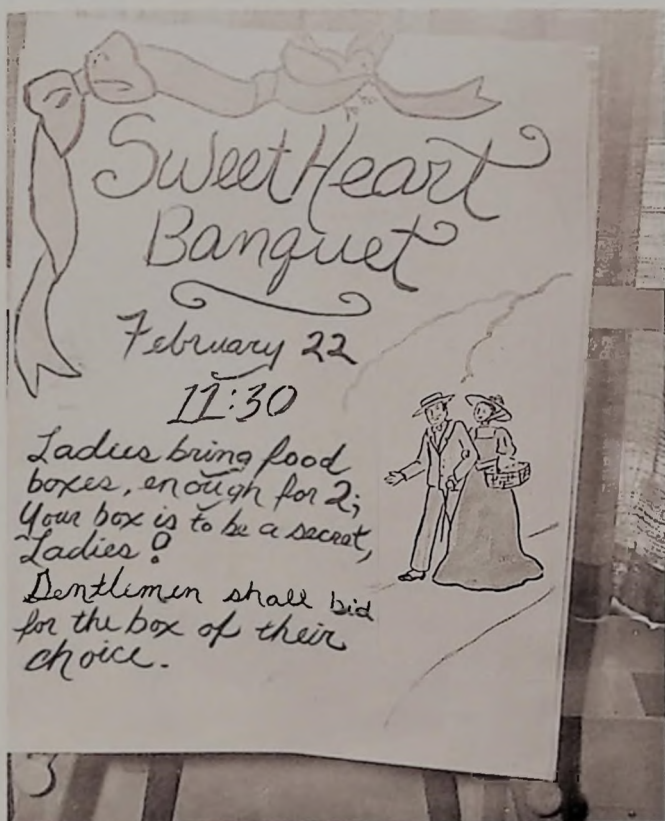 SweetHeart
Banquet
February 22
11:30
Ladies bring food
boxes, enough for 2;
Your box is to be a secret,
Ladies!
Gentlemen shall bid
for the box of their
choice.